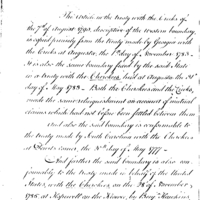 The notice in the treaty with the Creeks of
the 7th of August 1790, descriptive of the western boundary
is copied precisely from the treaty made by Georgia with
the Creeks at Augusta, the 1st day of November 1783.
It is also the same boundary fixed by the said State
in a treaty with the Cherokees, held at Augusta the 31st
day of May 1783. Both the Cherokees and the Creeks,
made the same relinquishment on account of mutual
claims which had not before been settled between them
and also the said boundary is conformable to
the treaty made by South Carolina with the Cherokees
at Dewits Corner, the 20th day of May 1777.
And further the said boundary is also con-
formable to the treaty made in behalf of the United
States, with the Cherokees, on the 28 of November
1785 at Hopewell on the Keowee, by Benj. Hawkins